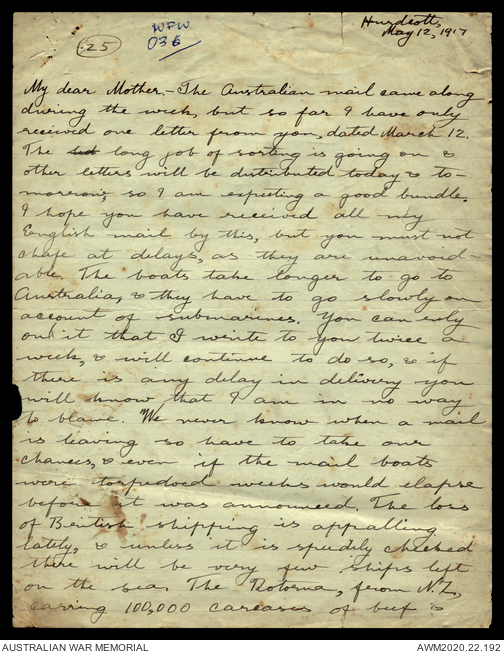 Hurdcott,
May 12, 1917
25
WFW
036
My dear Mother,- The Australian mail came along
during the week, but so far I have only
received one letter from you, dated March 12.
The long job of sorting is going on &
other letters will be distributed today & to-
morrow, so I am expecting a good bundle.
I hope you have received all my
English mail by this, but you must not
chafe at delays, as they are unavoid-
able. The boats take longer to go to
Australia, & they have to go slowly on
account of submarines. You can rely
on it that I write to you twice a
week, & will continue to do so, & if
there is any delay in delivery you
will know that I am in no way
to blame. We never know when a mail
is leaving so have to take our
chances, & even if the mail boats
were torpedoed weeks would elapse
before it was announced. The loss
of British shipping is appalling
lately, & unless it is speedily checked
there will be very few ships left
on the sea. The Rotorua, from N.Z.,
carrying 100,000 carcases of beef &
AUSTRALIAN WAR MEMORIAL
AWM2020.22.192